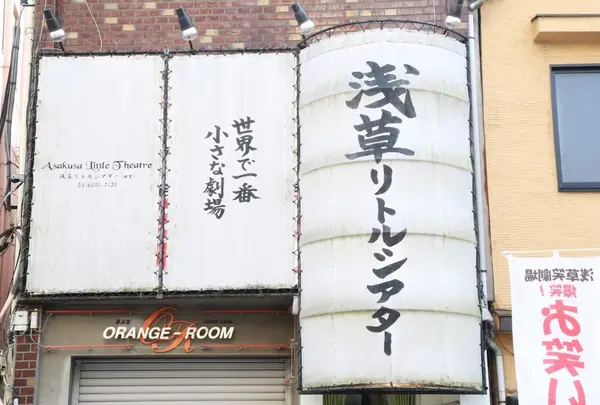 Asakusa Little Theatre
浅草リトルシアター
世界で一番
小さな劇場
浅草リトルシアター
BAR
ORANGE-ROOM
浅草笑劇場
爆笑!
お笑い